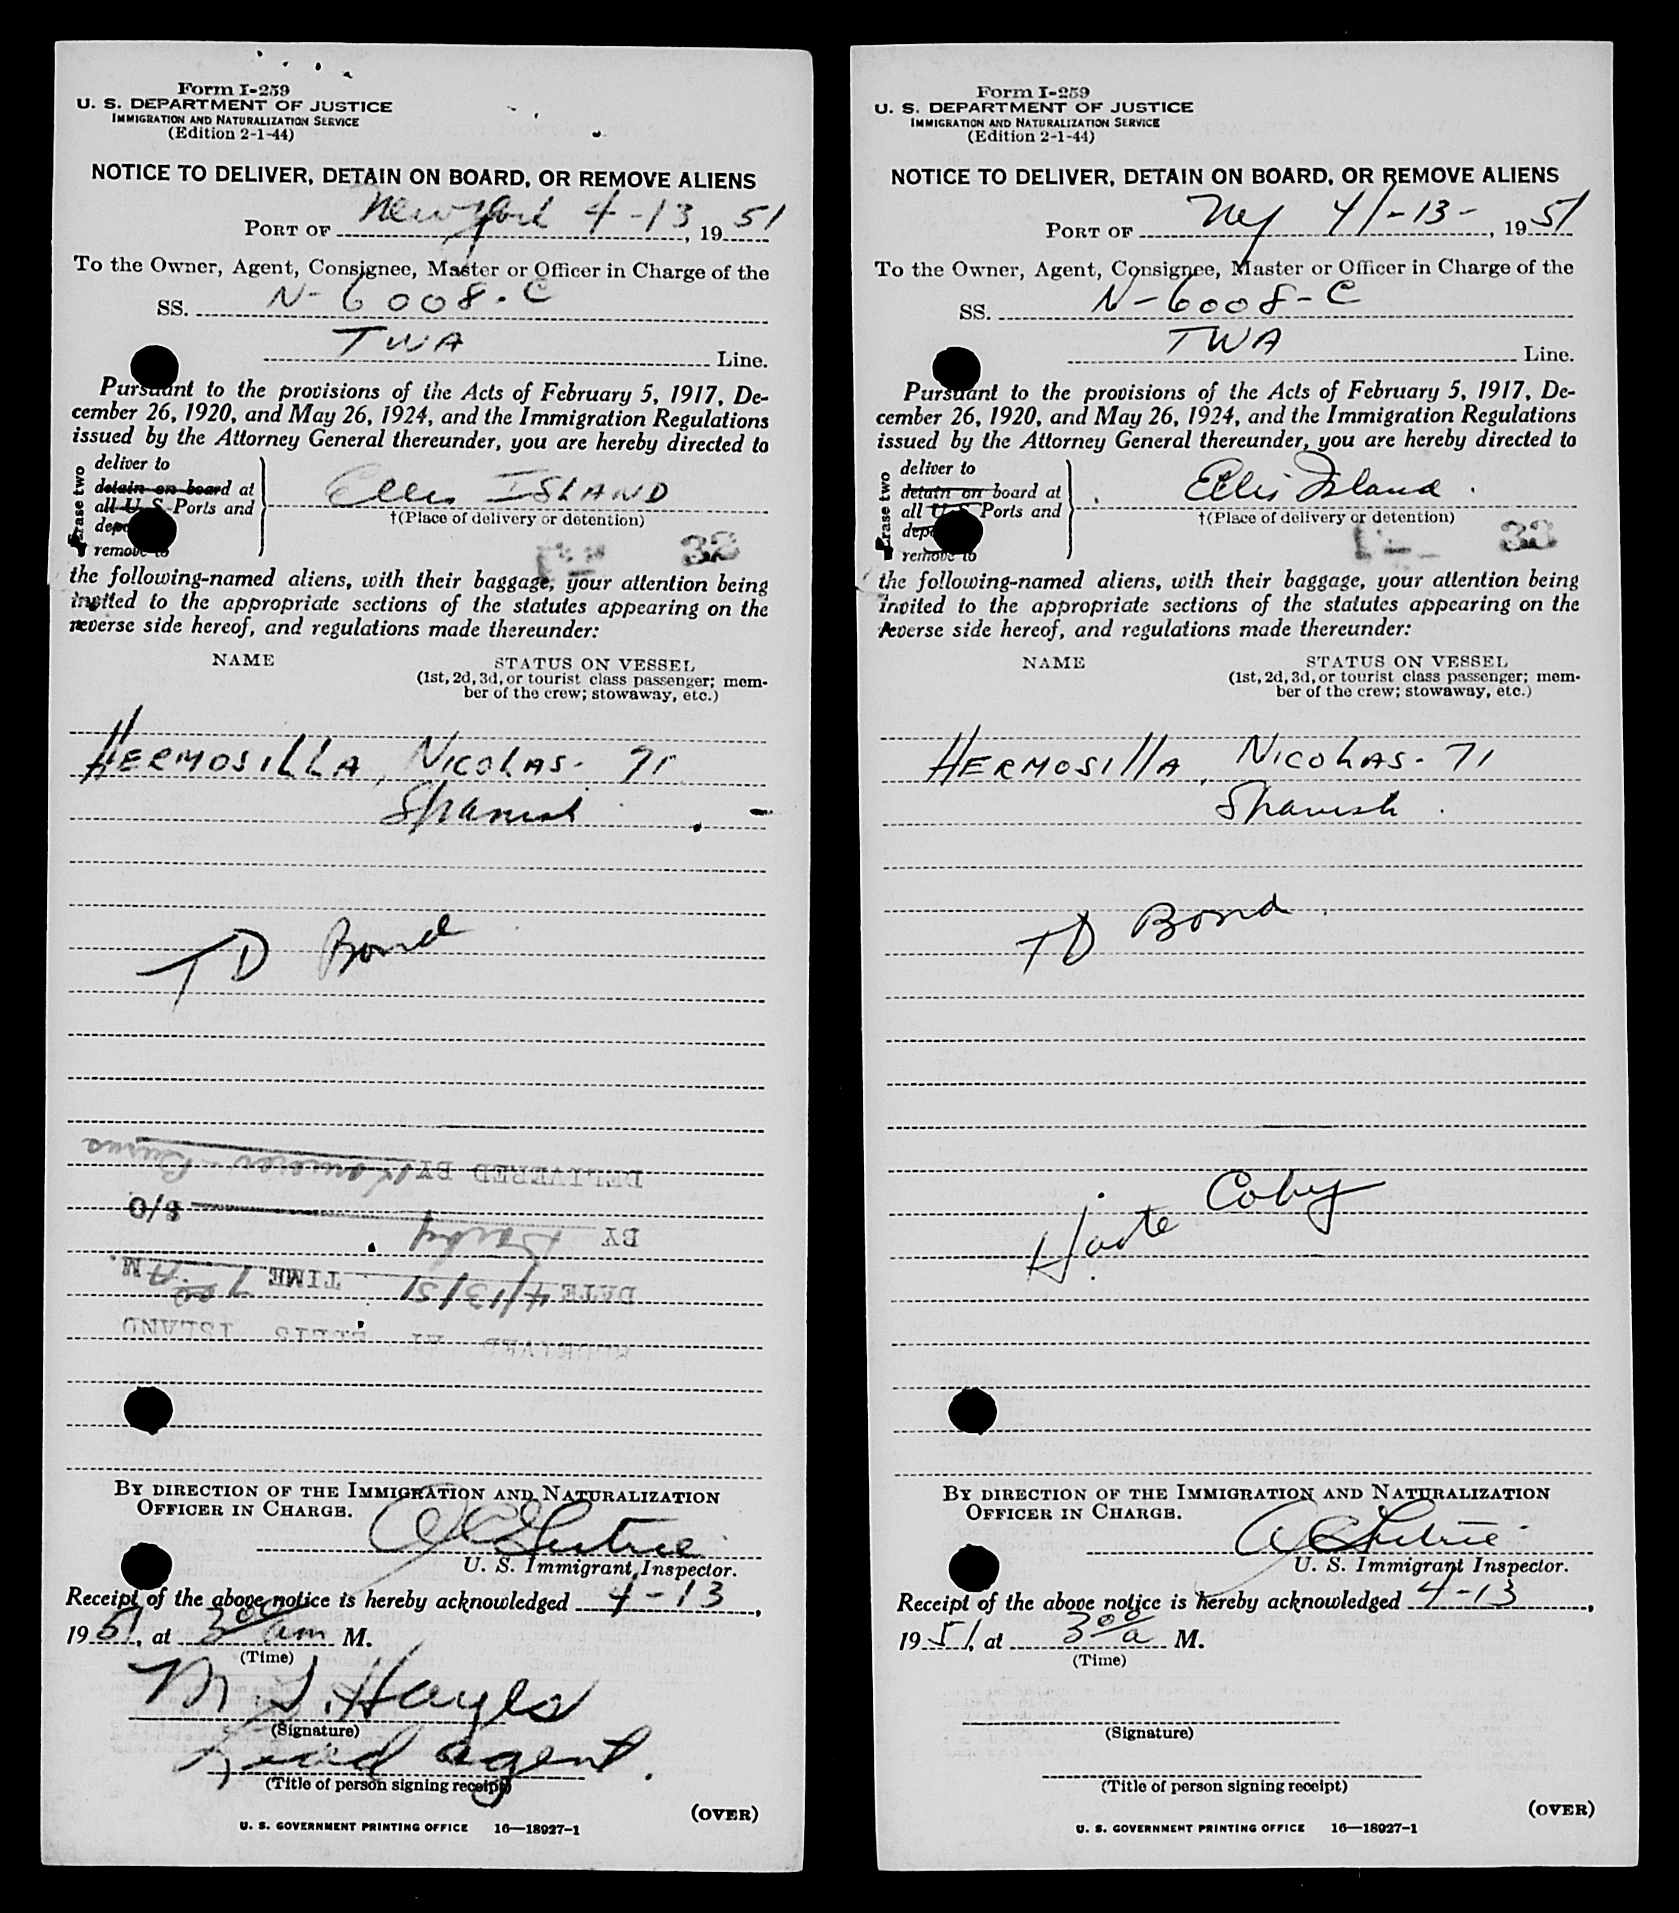 Form I-259
U. S. DEPARTMENT OF JUSTICE
IMMIGRATION AND NATURALIZATION SERVICE
(Edition 2-1-44)
NOTICE TO DELIVER, DETAIN ON BOARD, OR REMOVE ALIENS
PORT OF New York 4-13, 1951
To the Owner, Agent, Consignee, Master or Officer in Charge of the
SS. N-6008-C
TWA Line.
Pursuant to the provisions of the Acts of February 5, 1917, De-
cember 26, 1920, and May 26, 1924, and the Immigration Regulations
issued by the Attorney General thereunder, you are hereby directed to
Erase two
deliver to
detain on board at
all U. S. Ports and
remove to
Ellis ISLAND
†(Place of delivery or detention)
33
the following-named aliens, with their baggage, your attention being
invited to the appropriate sections of the statutes appearing on the
reverse side hereof, and regulations made thereunder:
NAME
STATUS ON VESSEL
(1st, 2d, 3d, or tourist class passenger; mem-
ber of the crew; stowaway, etc.)
HERMOSILLA, NICOLAS. 71
Spanish
TD Bond
DELIVERED BY
BY
S/O
DATE 4/13/51 TIME 7 00 A.M.
ELLIS ISLAND
BY DIRECTION OF THE IMMIGRATION AND NATURALIZATION
OFFICER IN CHARGE.
U. S. Immigrant Inspector.
Receipt of the above notice is hereby acknowledged 4-13,
1951, at 3 00 am M.
(Time)
M. J. Hayes
(Signature)
Lead agent.
(Title of person signing receipt)
(OVER)
U. S. GOVERNMENT PRINTING OFFICE 16—18927-1
Form I-259
U. S. DEPARTMENT OF JUSTICE
IMMIGRATION AND NATURALIZATION SERVICE
(Edition 2-1-44)
NOTICE TO DELIVER, DETAIN ON BOARD, OR REMOVE ALIENS
PORT OF Ny 4-13-, 1951
To the Owner, Agent, Consignee, Master or Officer in Charge of the
SS. N-6008-C
TWA Line.
Pursuant to the provisions of the Acts of February 5, 1917, De-
cember 26, 1920, and May 26, 1924, and the Immigration Regulations
issued by the Attorney General thereunder, you are hereby directed to
Erase two
deliver to
detain on board at
all U. S. Ports and
remove to
Ellis Island
†(Place of delivery or detention)
33
the following-named aliens, with their baggage, your attention being
invited to the appropriate sections of the statutes appearing on the
reverse side hereof, and regulations made thereunder:
NAME
STATUS ON VESSEL
(1st, 2d, 3d, or tourist class passenger; mem-
ber of the crew; stowaway, etc.)
HERMOSIllA, NICOLAS. 71
Spanish
TD Bond
BY DIRECTION OF THE IMMIGRATION AND NATURALIZATION
OFFICER IN CHARGE.
U. S. Immigrant Inspector.
Receipt of the above notice is hereby acknowledged 4-13,
1951, at 3 00 a M.
(Time)
(Signature)
(Title of person signing receipt)
(OVER)
U. S. GOVERNMENT PRINTING OFFICE 16—18927-1